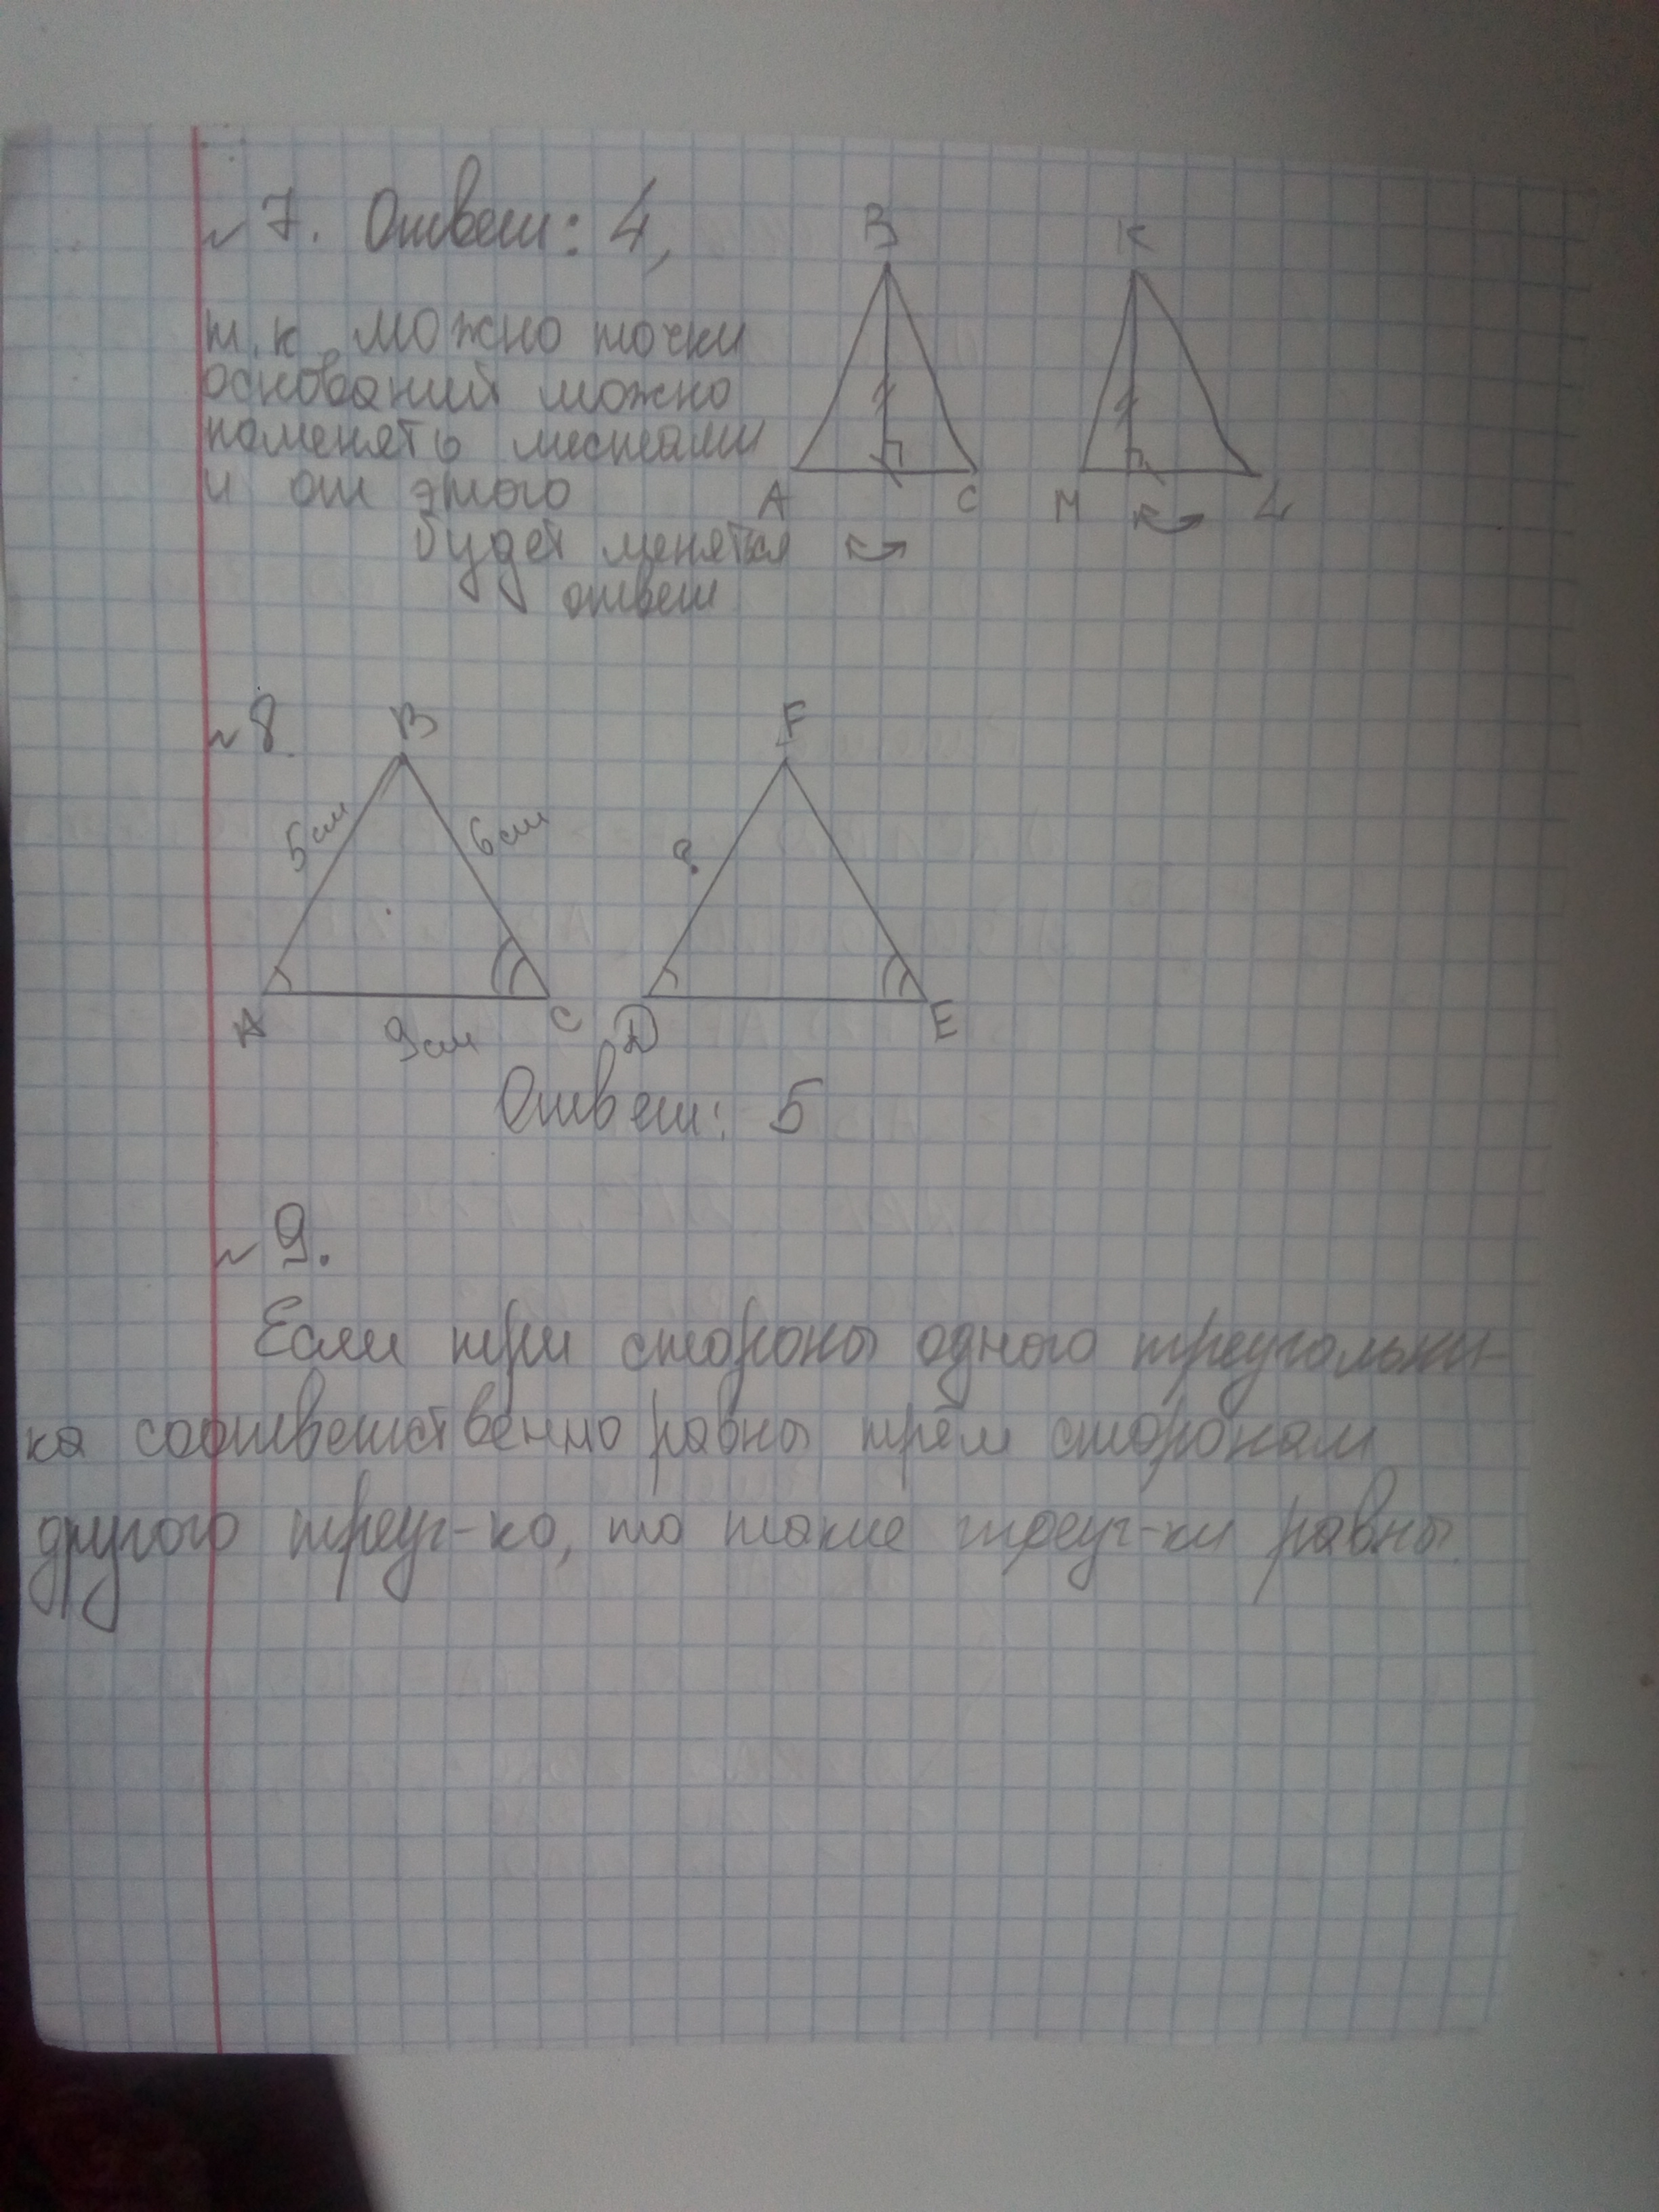 №7. Ответ: 4,
т.к можно точки
оснований можно
поменять местами
и от этого
будет менятся
ответ
B
K
A
C
M
L
№8.
B
F
5см
6см
?
A
C
D
E
9см
Ответ: 5
№9.
Если три стороны одного треугольни-
ка соответственно равны трём сторонам
другого треуг-ка, то такие треуг-ки равны.